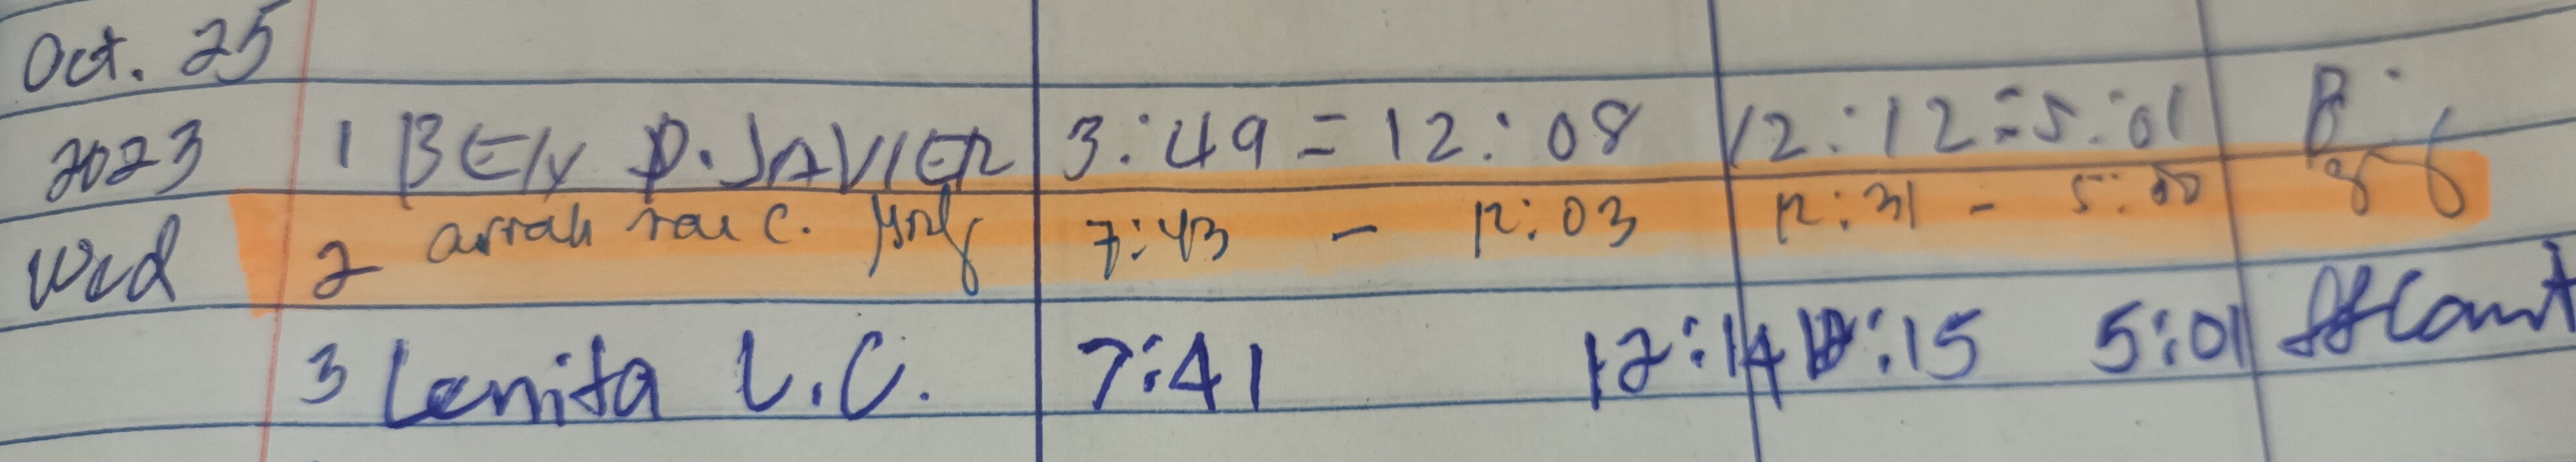 Oct. 25
2023 1 BEN D. JAVIER 3:49 = 12:08 12:12 = 5:01
Wed 2 arrah rae C. 7:43 - 12:03 12:31 - 5:00
3 Lenita L.C. 7:41 12:14 12:15 5:01